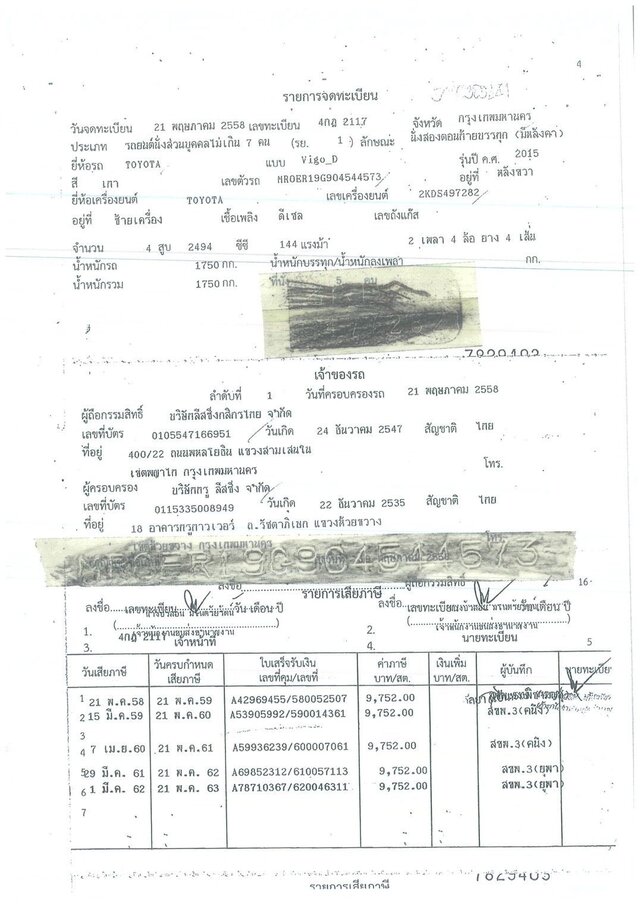 4
รายการจดทะเบียน
วันจดทะเบียน 21 พฤษภาคม 2558 เลขทะเบียน 4กฎ 2117 จังหวัด กรุงเทพมหานคร
ประเภท รถยนต์นั่งส่วนบุคคลไม่เกิน 7 คน (รย. 1) ลักษณะ นั่งสองตอนท้ายบรรทุก (มีหลังคา)
ยี่ห้อรถ TOYOTA แบบ Vigo_D รุ่นปี ค.ศ. 2015
สี เทา เลขตัวรถ MROER19G904544573 อยู่ที่ หลังขวา
ยี่ห้อเครื่องยนต์ TOYOTA เลขเครื่องยนต์ 2KDS497282
อยู่ที่ ซ้ายเครื่อง เชื้อเพลิง ดีเซล เลขถังแก๊ส
จำนวน 4 สูบ 2494 ซีซี 144 แรงม้า 2 เพลา 4 ล้อ ยาง 4 เส้น
น้ำหนักรถ 1750 กก. น้ำหนักบรรทุก/น้ำหนักลงเพลา กก.
น้ำหนักรวม 1750 กก. ที่นั่ง 5 คน
7829402
เจ้าของรถ
ลำดับที่ 1 วันที่ครอบครองรถ 21 พฤษภาคม 2558
ผู้ถือกรรมสิทธิ์ บริษัทลีสซิ่งกสิกรไทย จำกัด
เลขที่บัตร 0105547166951 วันเกิด 24 ธันวาคม 2547 สัญชาติ ไทย
ที่อยู่ 400/22 ถนนพหลโยธิน แขวงสามเสนใน
เขตพญาไท กรุงเทพมหานคร โทร.
ผู้ครอบครอง บริษัทกรุ ลีสซิ่ง จำกัด
เลขที่บัตร 0115335008949 วันเกิด 22 ธันวาคม 2535 สัญชาติ ไทย
ที่อยู่ 18 อาคารทรูทาวเวอร์ ถ.รัชดาภิเษก แขวงห้วยขวาง
เขตห้วยขวาง กรุงเทพมหานคร โทร.
MROER19G904544573
ผู้ถือกรรมสิทธิ์
ลงชื่อ
รายการเสียภาษี 16
ลงชื่อ เลขทะเบียน วัน เดือน ปี ลงชื่อ เลขทะเบียน เดือน ปี
1. 4กฎ 2117 เจ้าหน้าที่ 2. นายทะเบียน
3. 4. 5
วันเสียภาษี วันครบกำหนดเสียภาษี ใบเสร็จรับเงิน เลขที่คุม/เลขที่ ค่าภาษี บาท/สต. เงินเพิ่ม บาท/สต. ผู้บันทึก นายทะเบียน
1 21 พ.ค.58 21 พ.ค.59 A42969455/580052507 9,752.00
2 15 มี.ค.59 21 พ.ค.60 A53905992/590014361 9,752.00 สขพ.3(คนึง)
3
4 7 เม.ย.60 21 พ.ค.61 A59936239/600007061 9,752.00 สขพ.3(คนึง)
5 29 มี.ค. 61 21 พ.ค. 62 A69852312/610057113 9,752.00 สขพ.3(ยุพา)
6 1 มี.ค. 62 21 พ.ค. 63 A78710367/620046311 9,752.00 สขพ.3(ยุพา)
7
7829403
รายการเสียภาษี